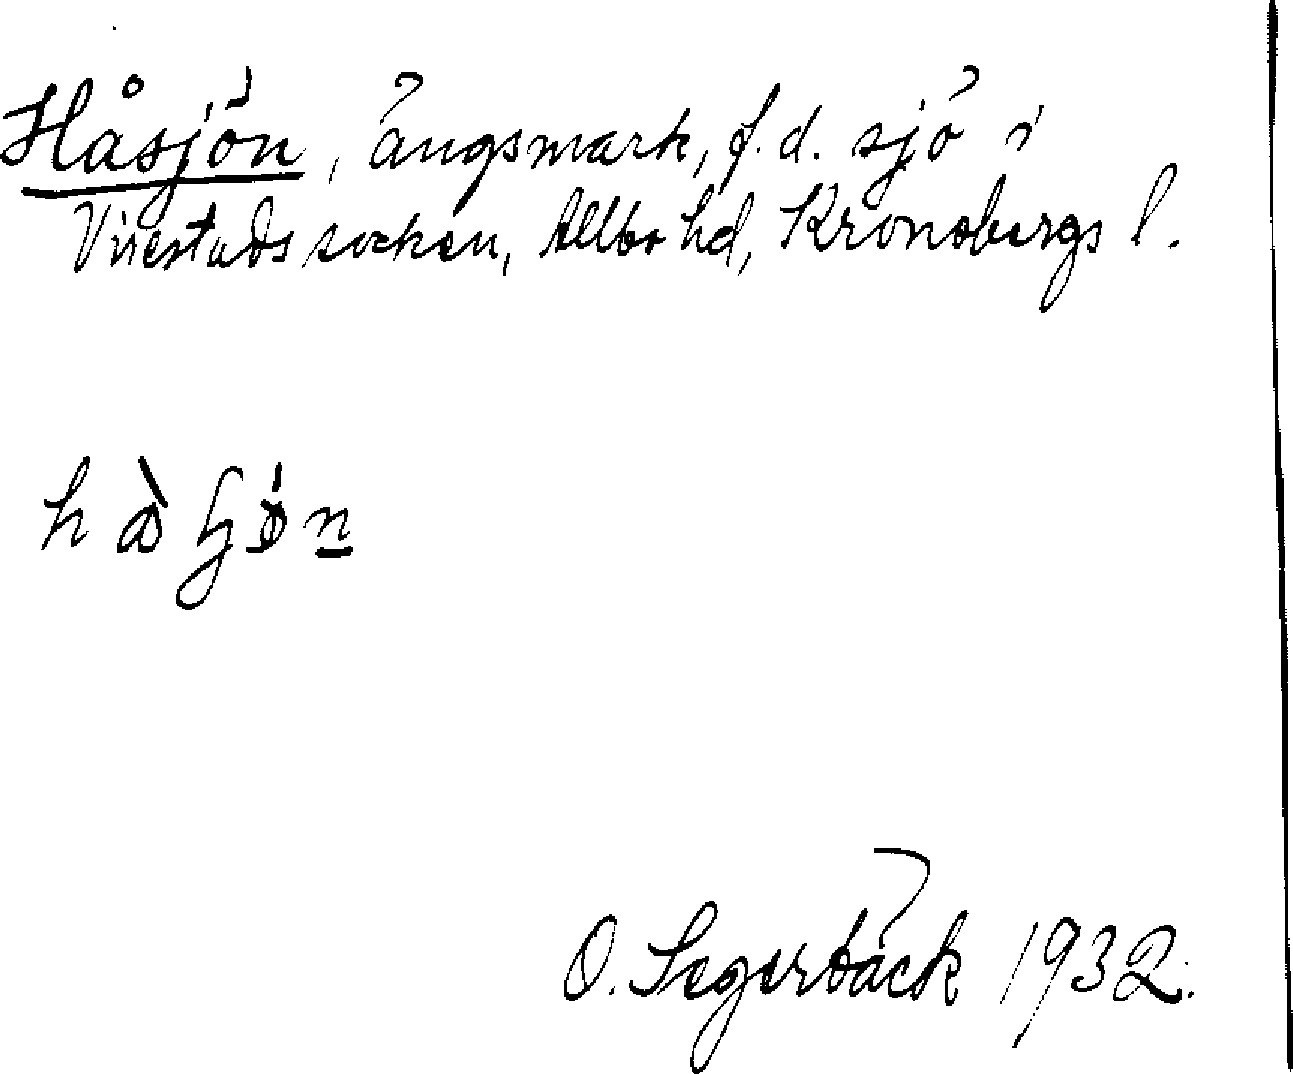 Håsjön, ängsmark, f.d. sjö i
Virestads socken, Allbo hd, Kronobergs l.
O. Segerbäck 1932.